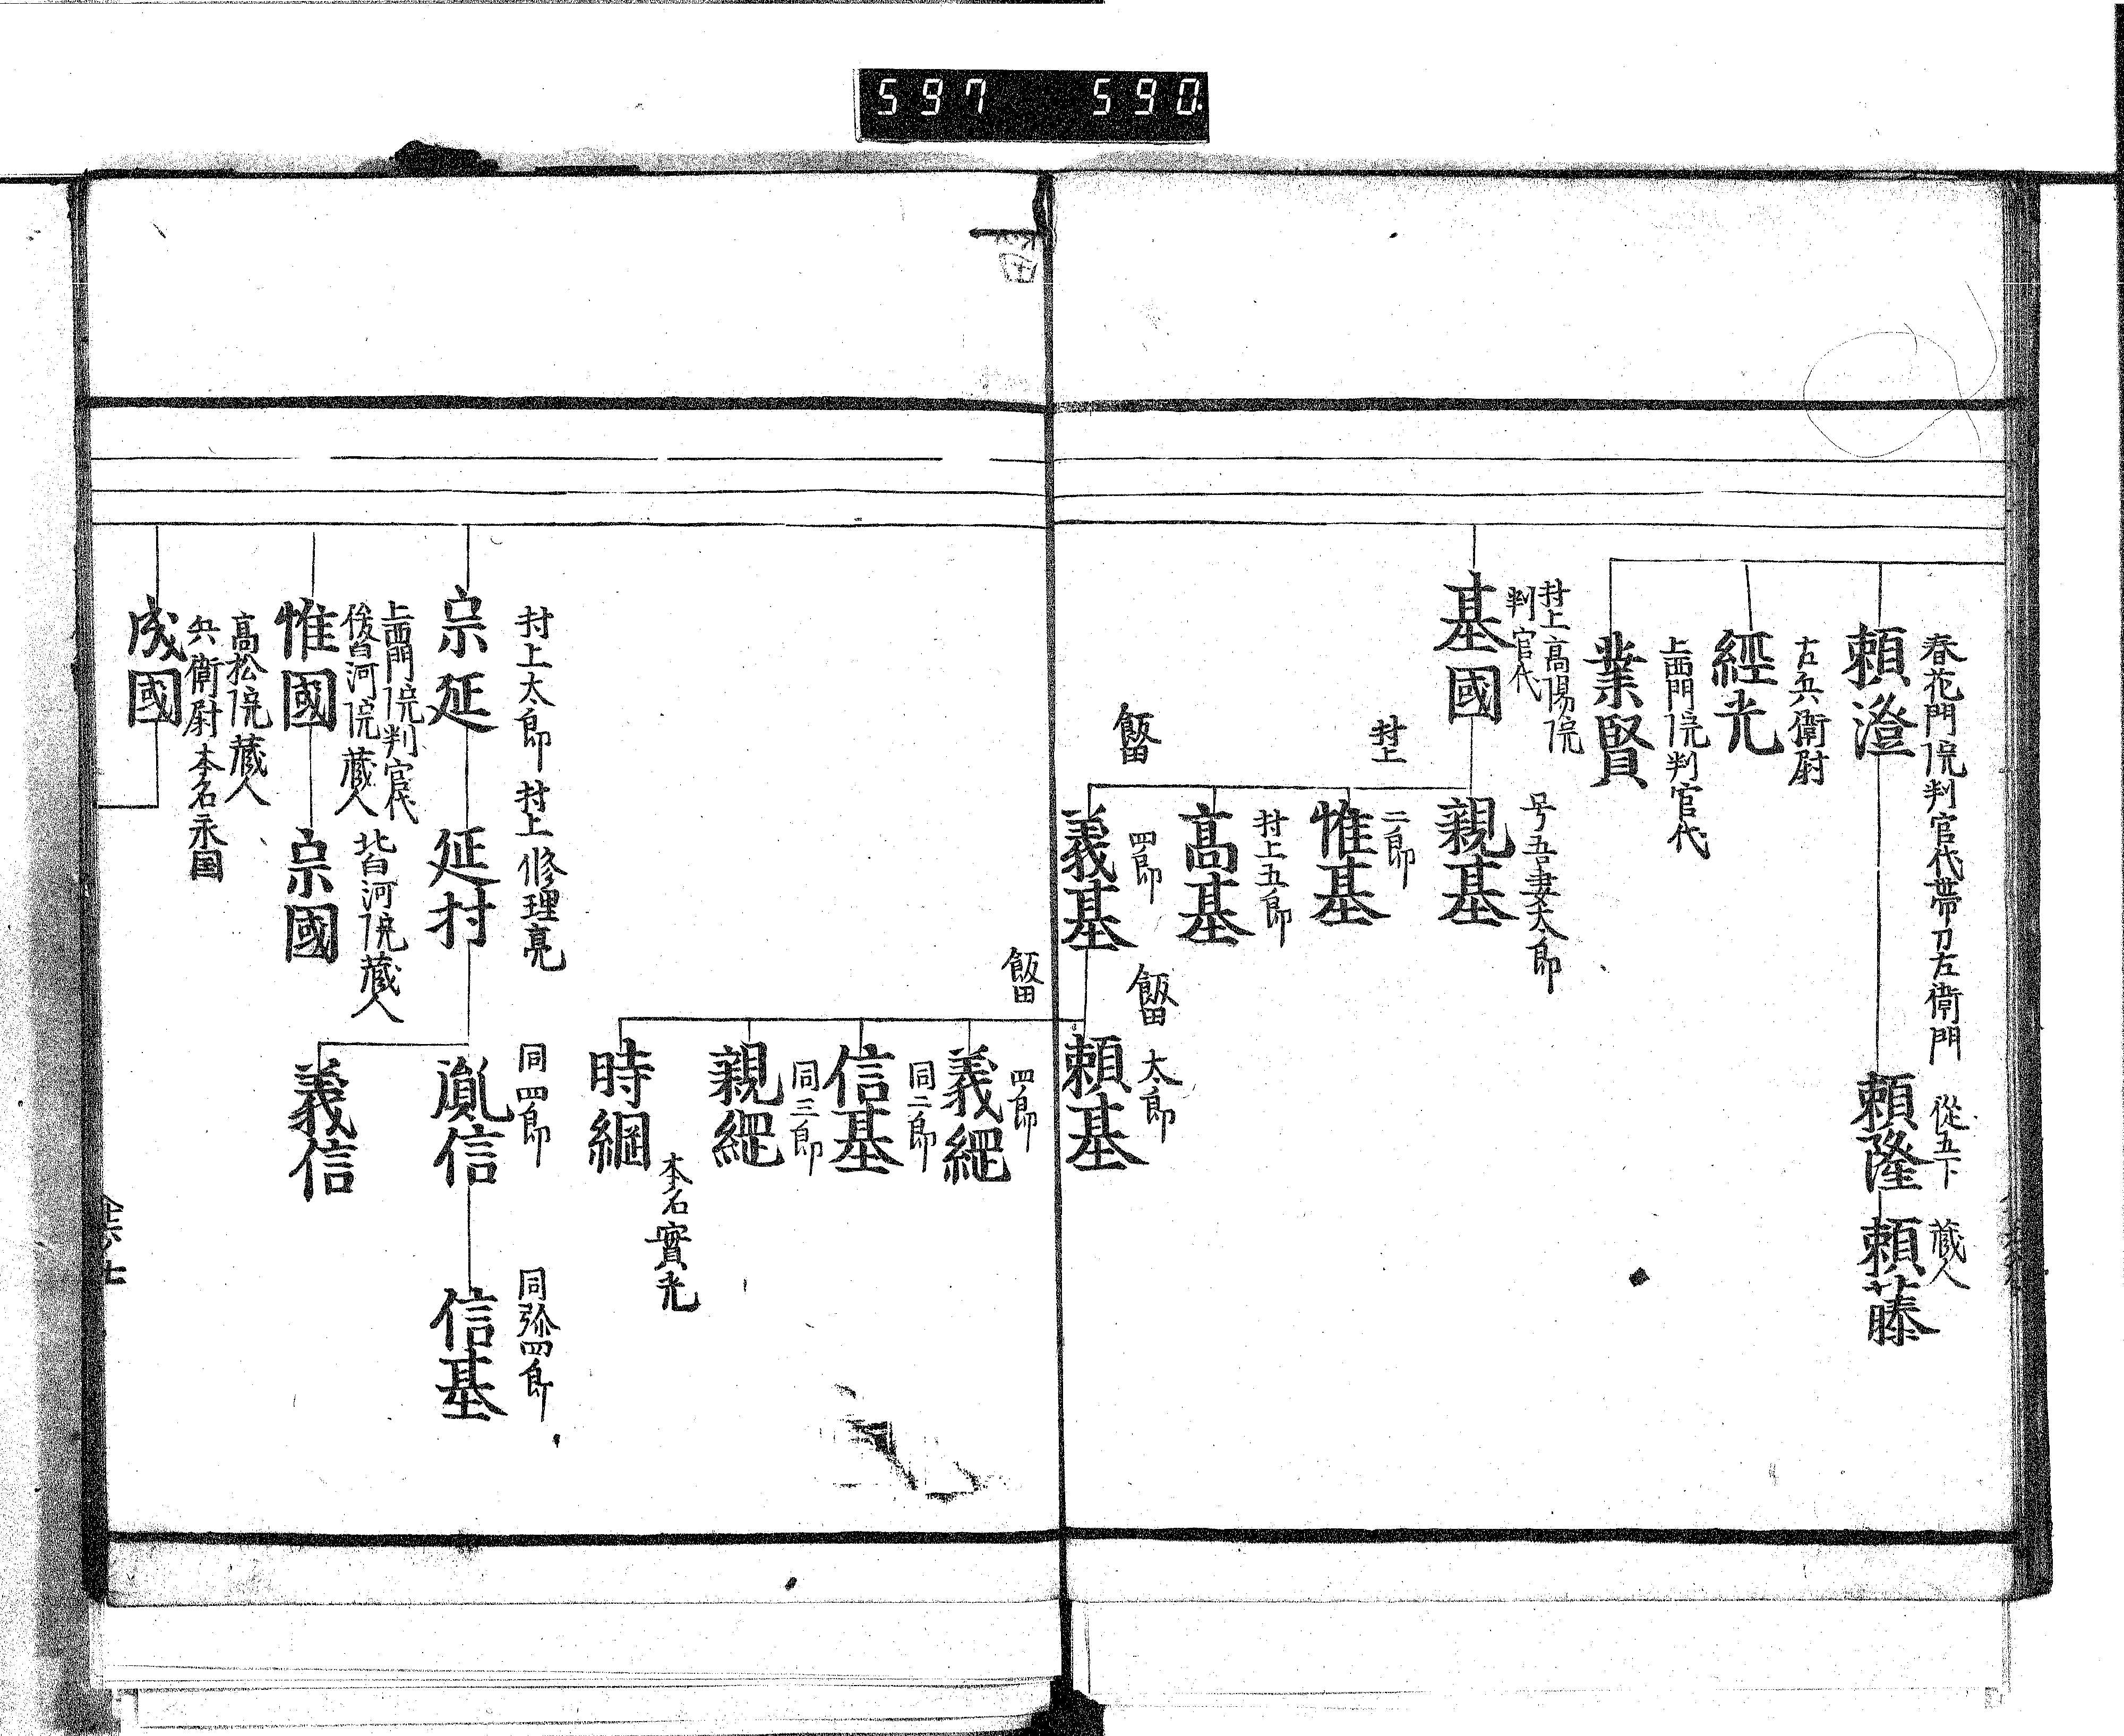 597 590
春花門院判官代帯刀左衛門
頼澄
從五下
頼隆
蔵人
頼藤
古兵衛尉
經光
上西門院判官代
業賢
村上高陽院
判官代
基國
号吾妻太郎
親基
村上
二郎
惟基
村上五郎
高基
飯田
四郎
義基
飯田
太郎
頼基
飯田
四郎
義繩
同二郎
信基
同三郎
親繩
本名實光
時綱
村上太郎
宗延
村上修理亮
延村
同四郎
胤信
同弥四郎
信基
義信
上西門院判官代
後白河院蔵人
惟國
北白河院蔵人
宗國
高松院蔵人
兵衛尉 本名永国
成國